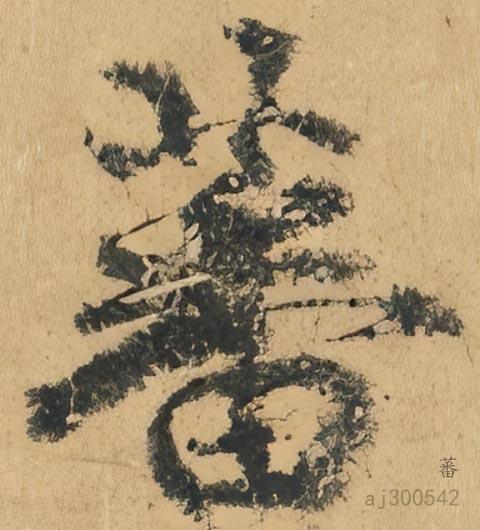 蕃
蕃
aj300542